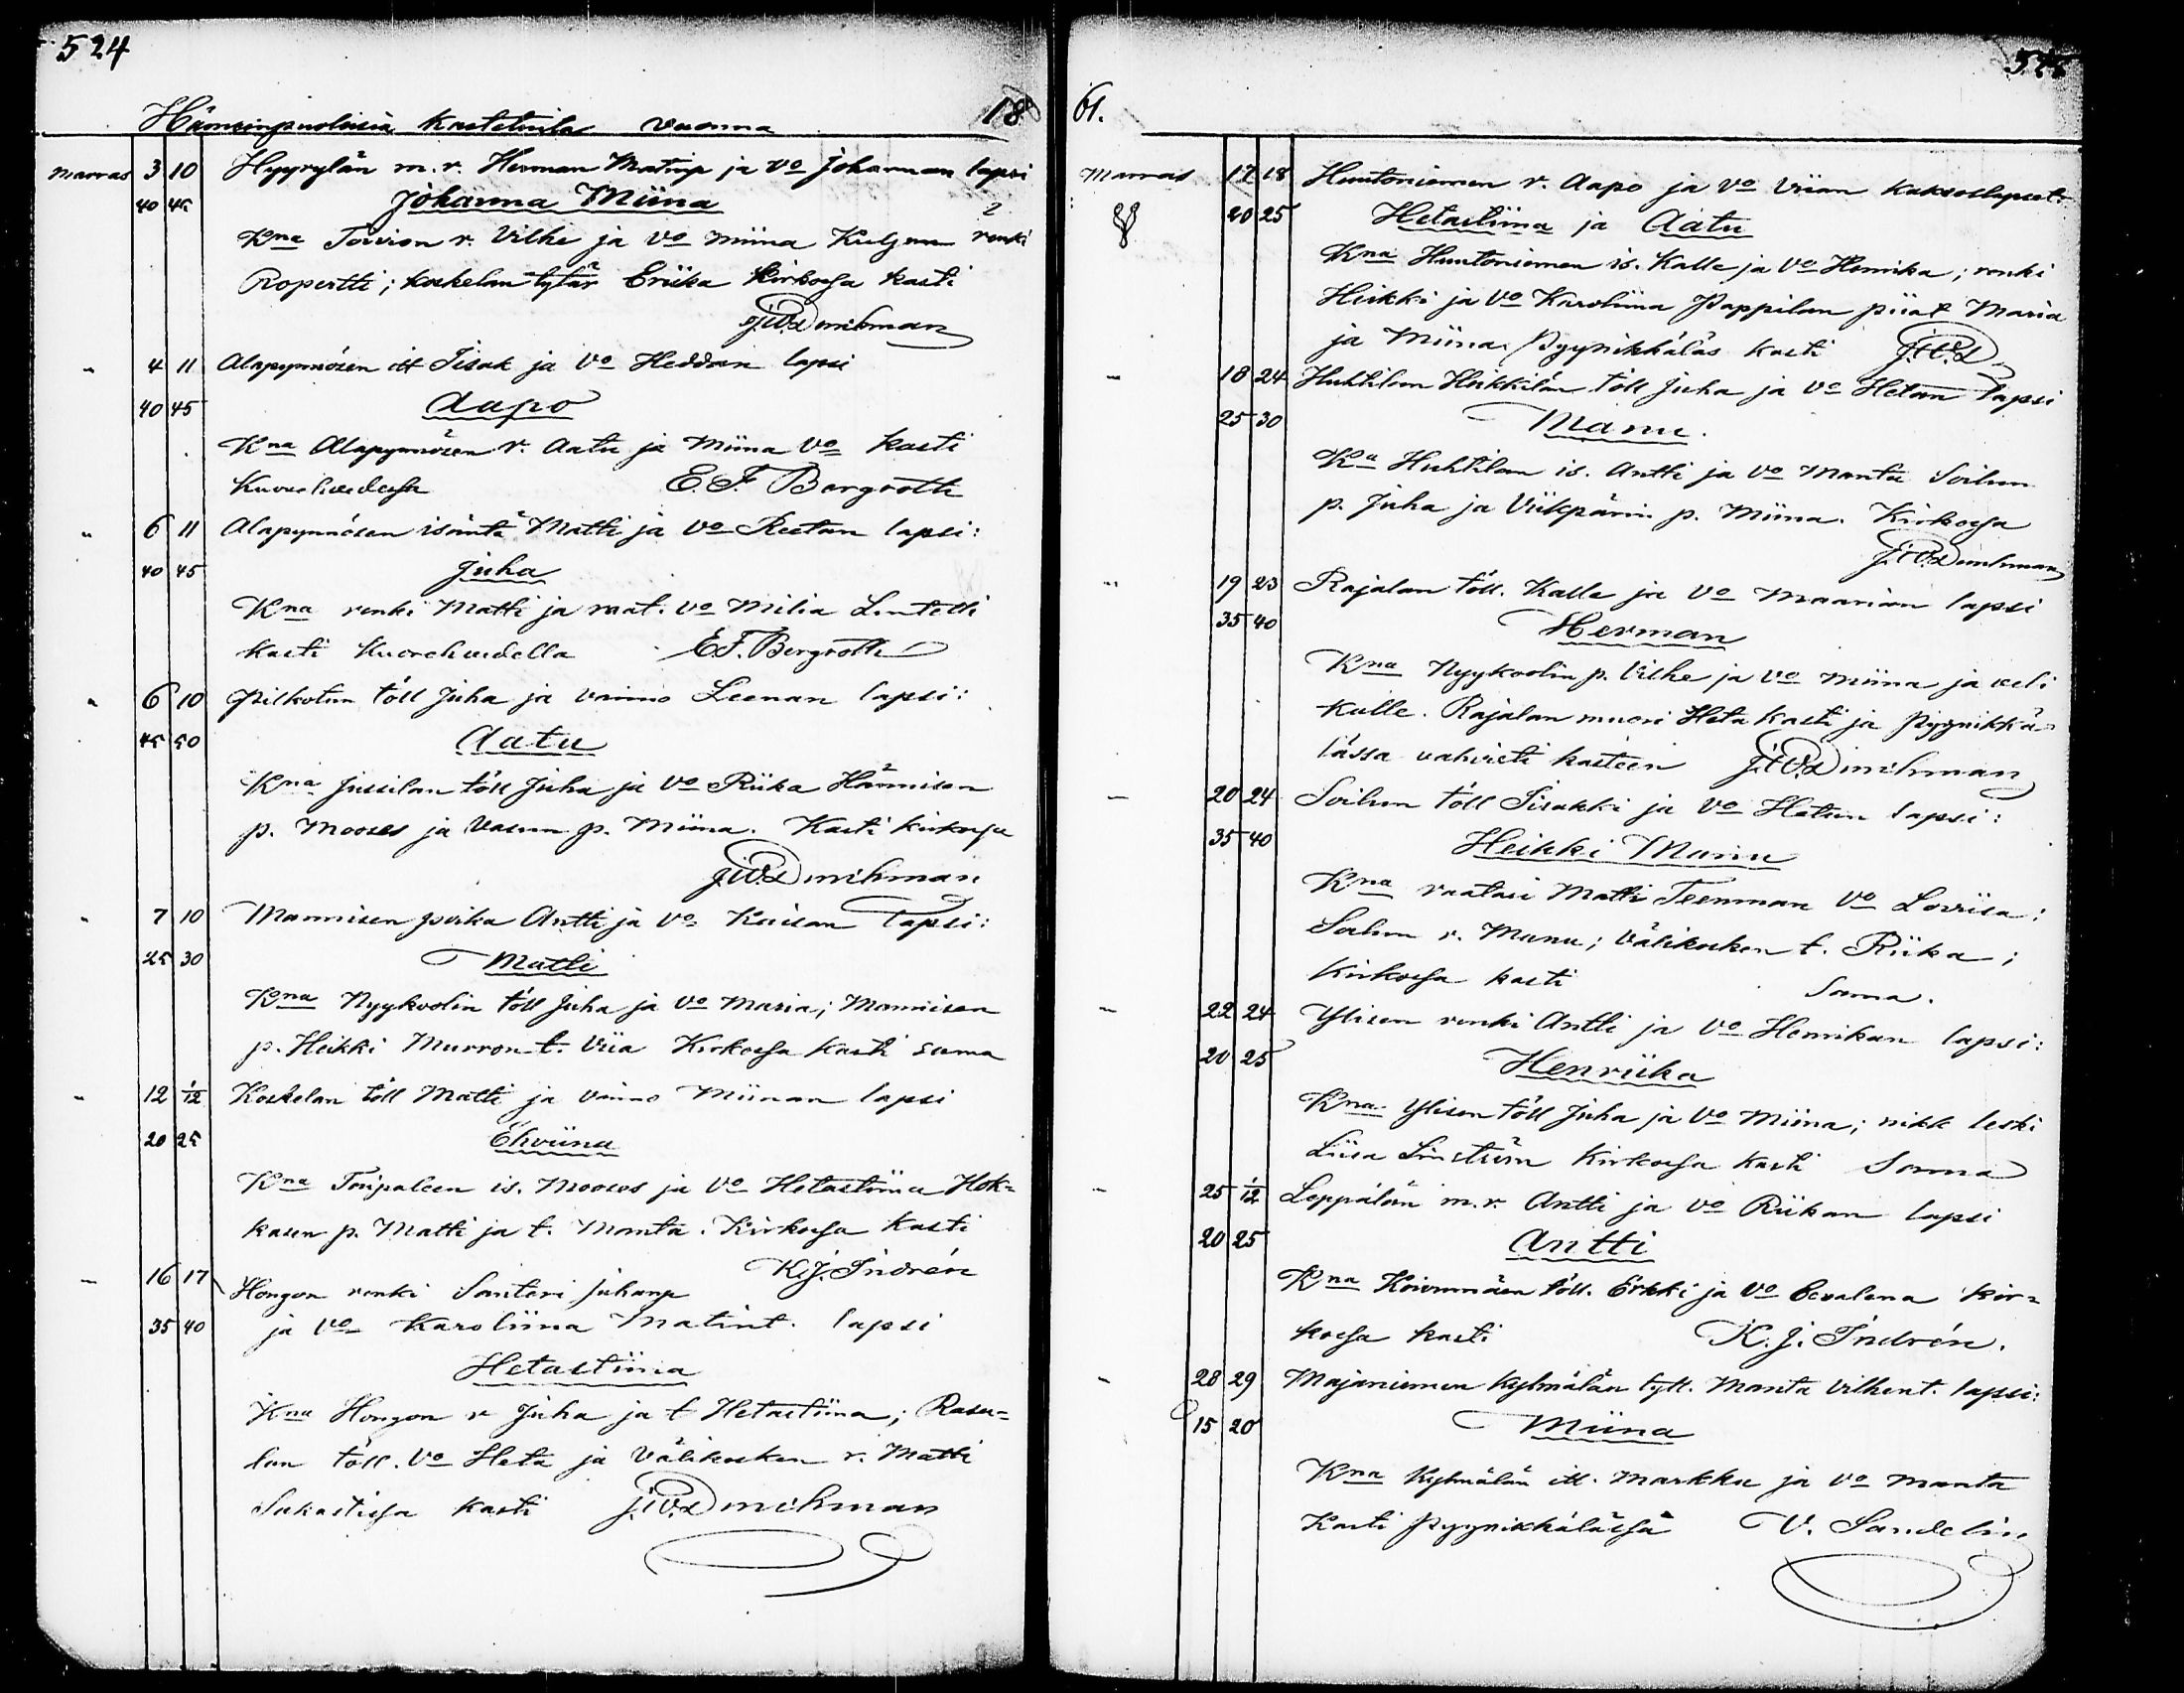 524
Hämeenpuoleisia Kastetuita vuonna 18
Marras 3 10 Hyyrylän m. r. Herman Matinp ja Vo Johannan lapsi
40 45 Johanna Miina
Kna Toivion r. Vilhe ja Vo Miina renki
Ropertti; Koskelan tytär Eriika Kirkossa Kasti
J.W. Durchman
" 4 11 Alapynnösen itt Iisak ja Vo Heddan lapsi
40 45 Aapo
Kna Alapynnösen r. Aatu ja Miina Vo Kasti
Kuorehvedessa E. F. Bergroth
" 6 11 Alapynnösen isäntä Matti ja Vo Reetan lapsi:
40 45 Juha
Kna renki Matti ja maat. Vo Milia
Kasti Kuorehvedella E.F. Bergroth
" 6 10 Pilkotun töll Juha ja vaimo Leenan lapsi:
45 50 Aatu
Kna Jussilan töll Juha ja Vo Riika Hännisen
p. Mooses ja p. Miina. Kasti kirkossa
J.W. Durchman
" 7 10 Mannisen poika Antti ja Vo Kaisan lapsi:
25 30 Matti
Kna Nyykoolin töll Juha ja Vo Maria; Mannisen
p. Heikki Murron t. Viia Kirkossa Kasti Sama
" 12 1/12 Koskelan töll Matti ja vaimo Miinan lapsi
20 25 Ehviina
Kna Toripaleen is. Mooses ja Vo Hetastiina Hok=
kasen p. Matti ja t. Manta. Kirkossa Kasti
K.J. Indrén
" 16 17 Hongon renki Santeri Juhanp
35 40 ja Vo Karoliina Matint. lapsi
Hetastiina
Kna Hongon r Juha ja t Hetastiina; Rasa=
lan töll. Vo Heta ja Välikosken r. Matti
Sakastissa Kasti J.W. Durchman
525
61.
Marras 17 18 Huutoniemen r. Aapo ja Vo Viian Kaksoslapset:
20 25 Hetastiina ja Aatu
Kna Huutoniemen is. Kalle ja Vo Henrika; renki
Heikki ja Vo Karoliina Pappilan piiat Maria
ja Miina. Pyynikkäläs Kasti J.W.D.
" 18 24 Huhtilan Heikkilän töll Juha ja Vo Hetan lapsi
25 30 Manu.
Kna Huhtilan is. Antti ja Vo Manta Soilun
p. Juha ja Viikpärin p. Miina. Kirkossa
J.W. Durchman
" 19 23 Rajalan töll. Kalle ja Vo Maarian lapsi
35 40 Herman
Kna Nyykoolin p. Vilhe ja Vo Miina ja veli
Kalle. Rajalan muori Heta Kasti ja Pyynikkä=
lässä vahvisti kasteen J.W. Durchman
" 20 24 Soilun töll Iisakki ja Vo Hetan lapsi:
35 40 Heikki Manu
Kna raatari Matti Teenman Vo Loviisa:
Soilun r. Manu; Välikosken t. Riika;
Kirkossa kasti Sama.
" 22 24 Ylisen renki Antti ja Vo Henrikan lapsi:
20 25 Henriika
Kna Ylisen töll Juha ja Vo Miina; nikk leski
Liisa Kirkossa Kasti Sama
" 25 1/12 Leppälän m. r. Antti ja Vo Riikan lapsi
20 25 Antti
Kna Koivunmäen töll. Erkki ja Vo Eevalena kir=
kossa kasti K. J. Indrén.
" 28 29 Majaniemen Kylmälän tytt. Manta Vilhent. lapsi:
15 20 Miina
Kna Kylmälän itt. Markku ja Vo Manta
Kasti Pyynikkälässä V. Sandelin